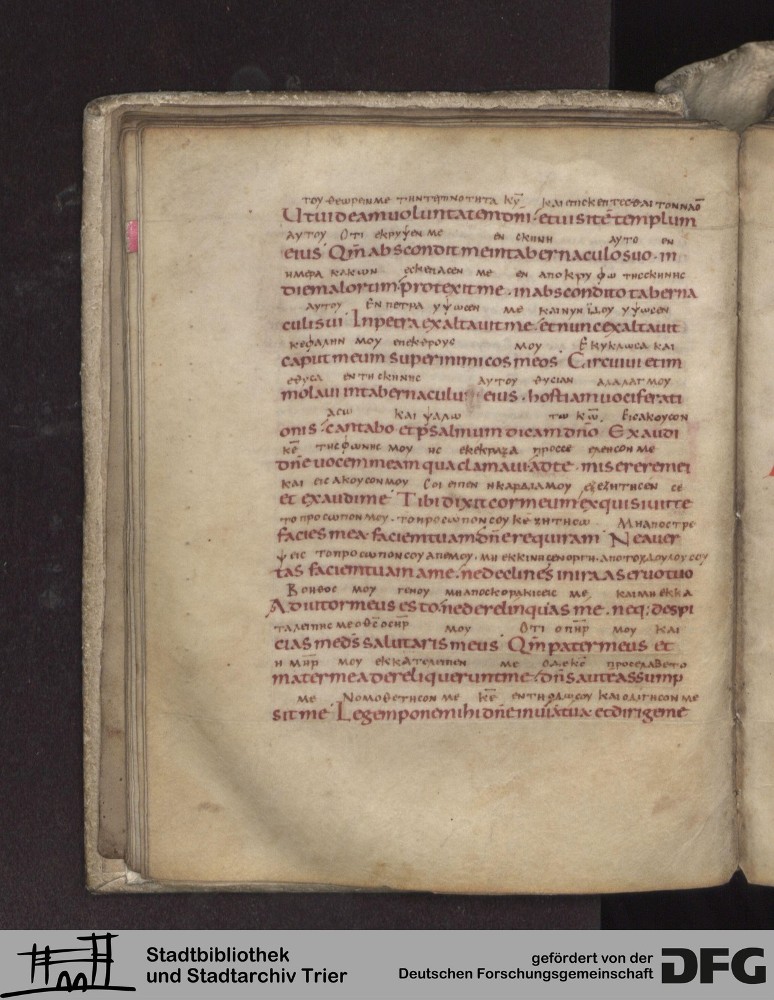 του θεωρεινμε τηντερπνοτητα κ̅υ̅ και επισκεπτεσθαι τον ναο̅
Utuideamuoluntatemdn̅i· etuisite̅ templum
αυτου Οτι εκρυψεν με εν σκηνη αυτο εν
eius Qm̅abscondit meintabernaculosuo· in
ημερα κακων εσκεπασεν με εν αποκρυφω τησσκηνης
diemalorum· protexitme· inabscondito taberna
αυτου Εν πετρα υψωσεν με και νυν ϊδου υψωσεν
culisui Inpetra exaltauitme· etnunc exaltauit
κεφαλην μου επεκθρους μου Εκυκλωσα και
caput meum superinimicos meos Circuiui etim
εθυσα εν τη σκηνης αυτου θυσιαν αλαλαγμου
molaui intabernaculu eius· hostiam uociferati
ασω και ψαλω τω κ̅ω̅. Εισακουσον
onis· cantabo etpsalmum dicam dn̅o Exaudi
κ̅ε̅ τησφωνης μου ης εκεκραξα προσσε ελεησον με
dn̅e uocemmeam qua clamauiadte· misereremei
και εισακουσον μου Σοι ειπεν ηκαρδιαμου εξεζητησεν σε
et exaudime Tibi dixit cormeum exquisiuitte
το προσωπον μου· το προσωπον σου κ̅ε̅ ζητησω Μηαποστρε
facies mea· faciemtuamdn̅erequiram Neauer
ψεις το προσωπον σου απεμου· μη εκκινησενοργη· αποτουδουλουσου
tas faciemtuam ame· nedeclines inira aseruotuo
Βοηθος μου γενου μηαποσκορακισεις με, και μη εκκα
Adiutormeus esto· nederelinquas me· neq; despi
ταλειπης με οθ̅σ̅ οσηρ̅ μου Οτι ο πηρ̅ μου και
cias meds̅ salutarismeus Qm̅patermeus et
η μηρ̅ μου εκκατελιπεν με ο δε κς̅ προσελαβετο
matermeadereliqueruntme· dn̅sautē assump
με Νομοθετησον με κ̅ε̅ εν τη οδωσου και οδηγησον με
sitme Legemponemihi dn̅e inuiatua· etdirigeme
Stadtbibliothek
und Stadtarchiv Trier
gefördert von der
Deutschen Forschungsgemeinschaft
DFG